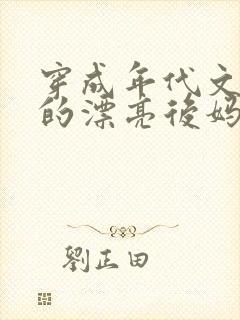 穿成年代文
的漂亮後妈
劉正田